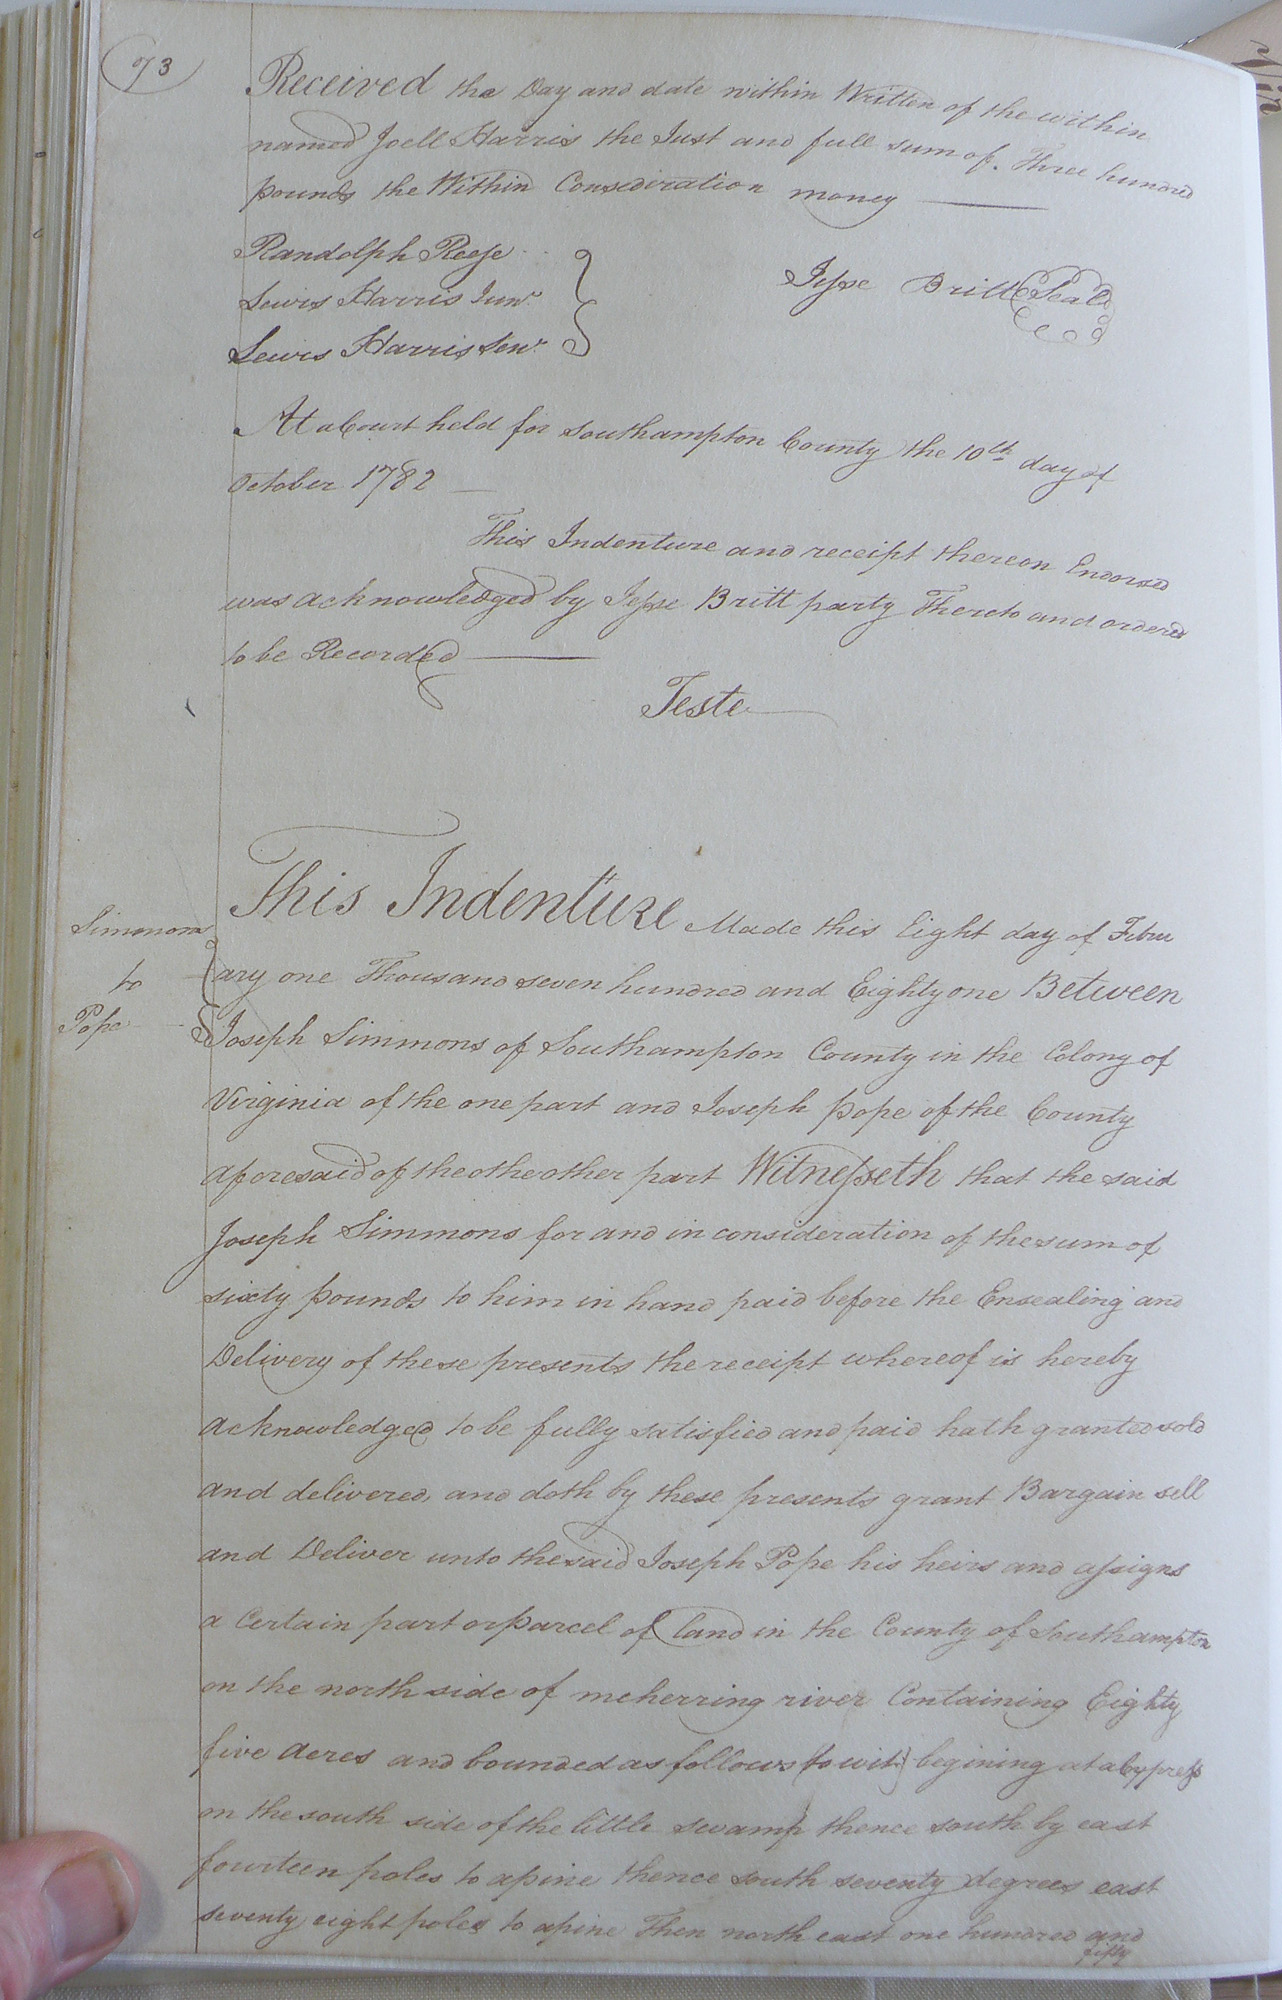 93
Received the Day and date within Written of the within
named Joell Harris the Just and full sum of. Three hundred
pounds the Within Consideration money
Randolph Reese
Lewis Harris Junr
Lewis Harris Senr.
Jesse Britt Seal
At a Court held for Southampton County the 10th day of
October 1782
This Indenture and receipt thereon Endorsed
was acknowledged by Jesse Britt party Thereto and ordered
to be Recorded
Teste
Simmons
to
Pope
This Indenture Made this Eight day of Febru
ary one Thousand seven hundred and Eighty one Between
Joseph Simmons of Southampton County in the Colony of
Virginia of the one part and Joseph pope of the County
aforesaid of the othe other part Witnesseth that the said
Joseph Simmons for and in consideration of the sum of
sixty pounds to him in hand paid before the Ensealing and
Delivery of these presents the receipt whereof is hereby
acknowledged to be fully satisfied and paid hath granted sold
and delivered, and doth by these presents grant Bargain sell
and Deliver unto the said Joseph Pope his heirs and assigns
a Certain part or parcel of Land in the County of Southampton
on the north side of meherring river Containing Eighty
five Acres and bounded as follows (to wit.) begining at a Cypress
on the south side of the little swamp thence south by east
fourteen poles to a pine thence south seventy degrees east
seventy eight poles to a pine Then north east one hundred and
fifty